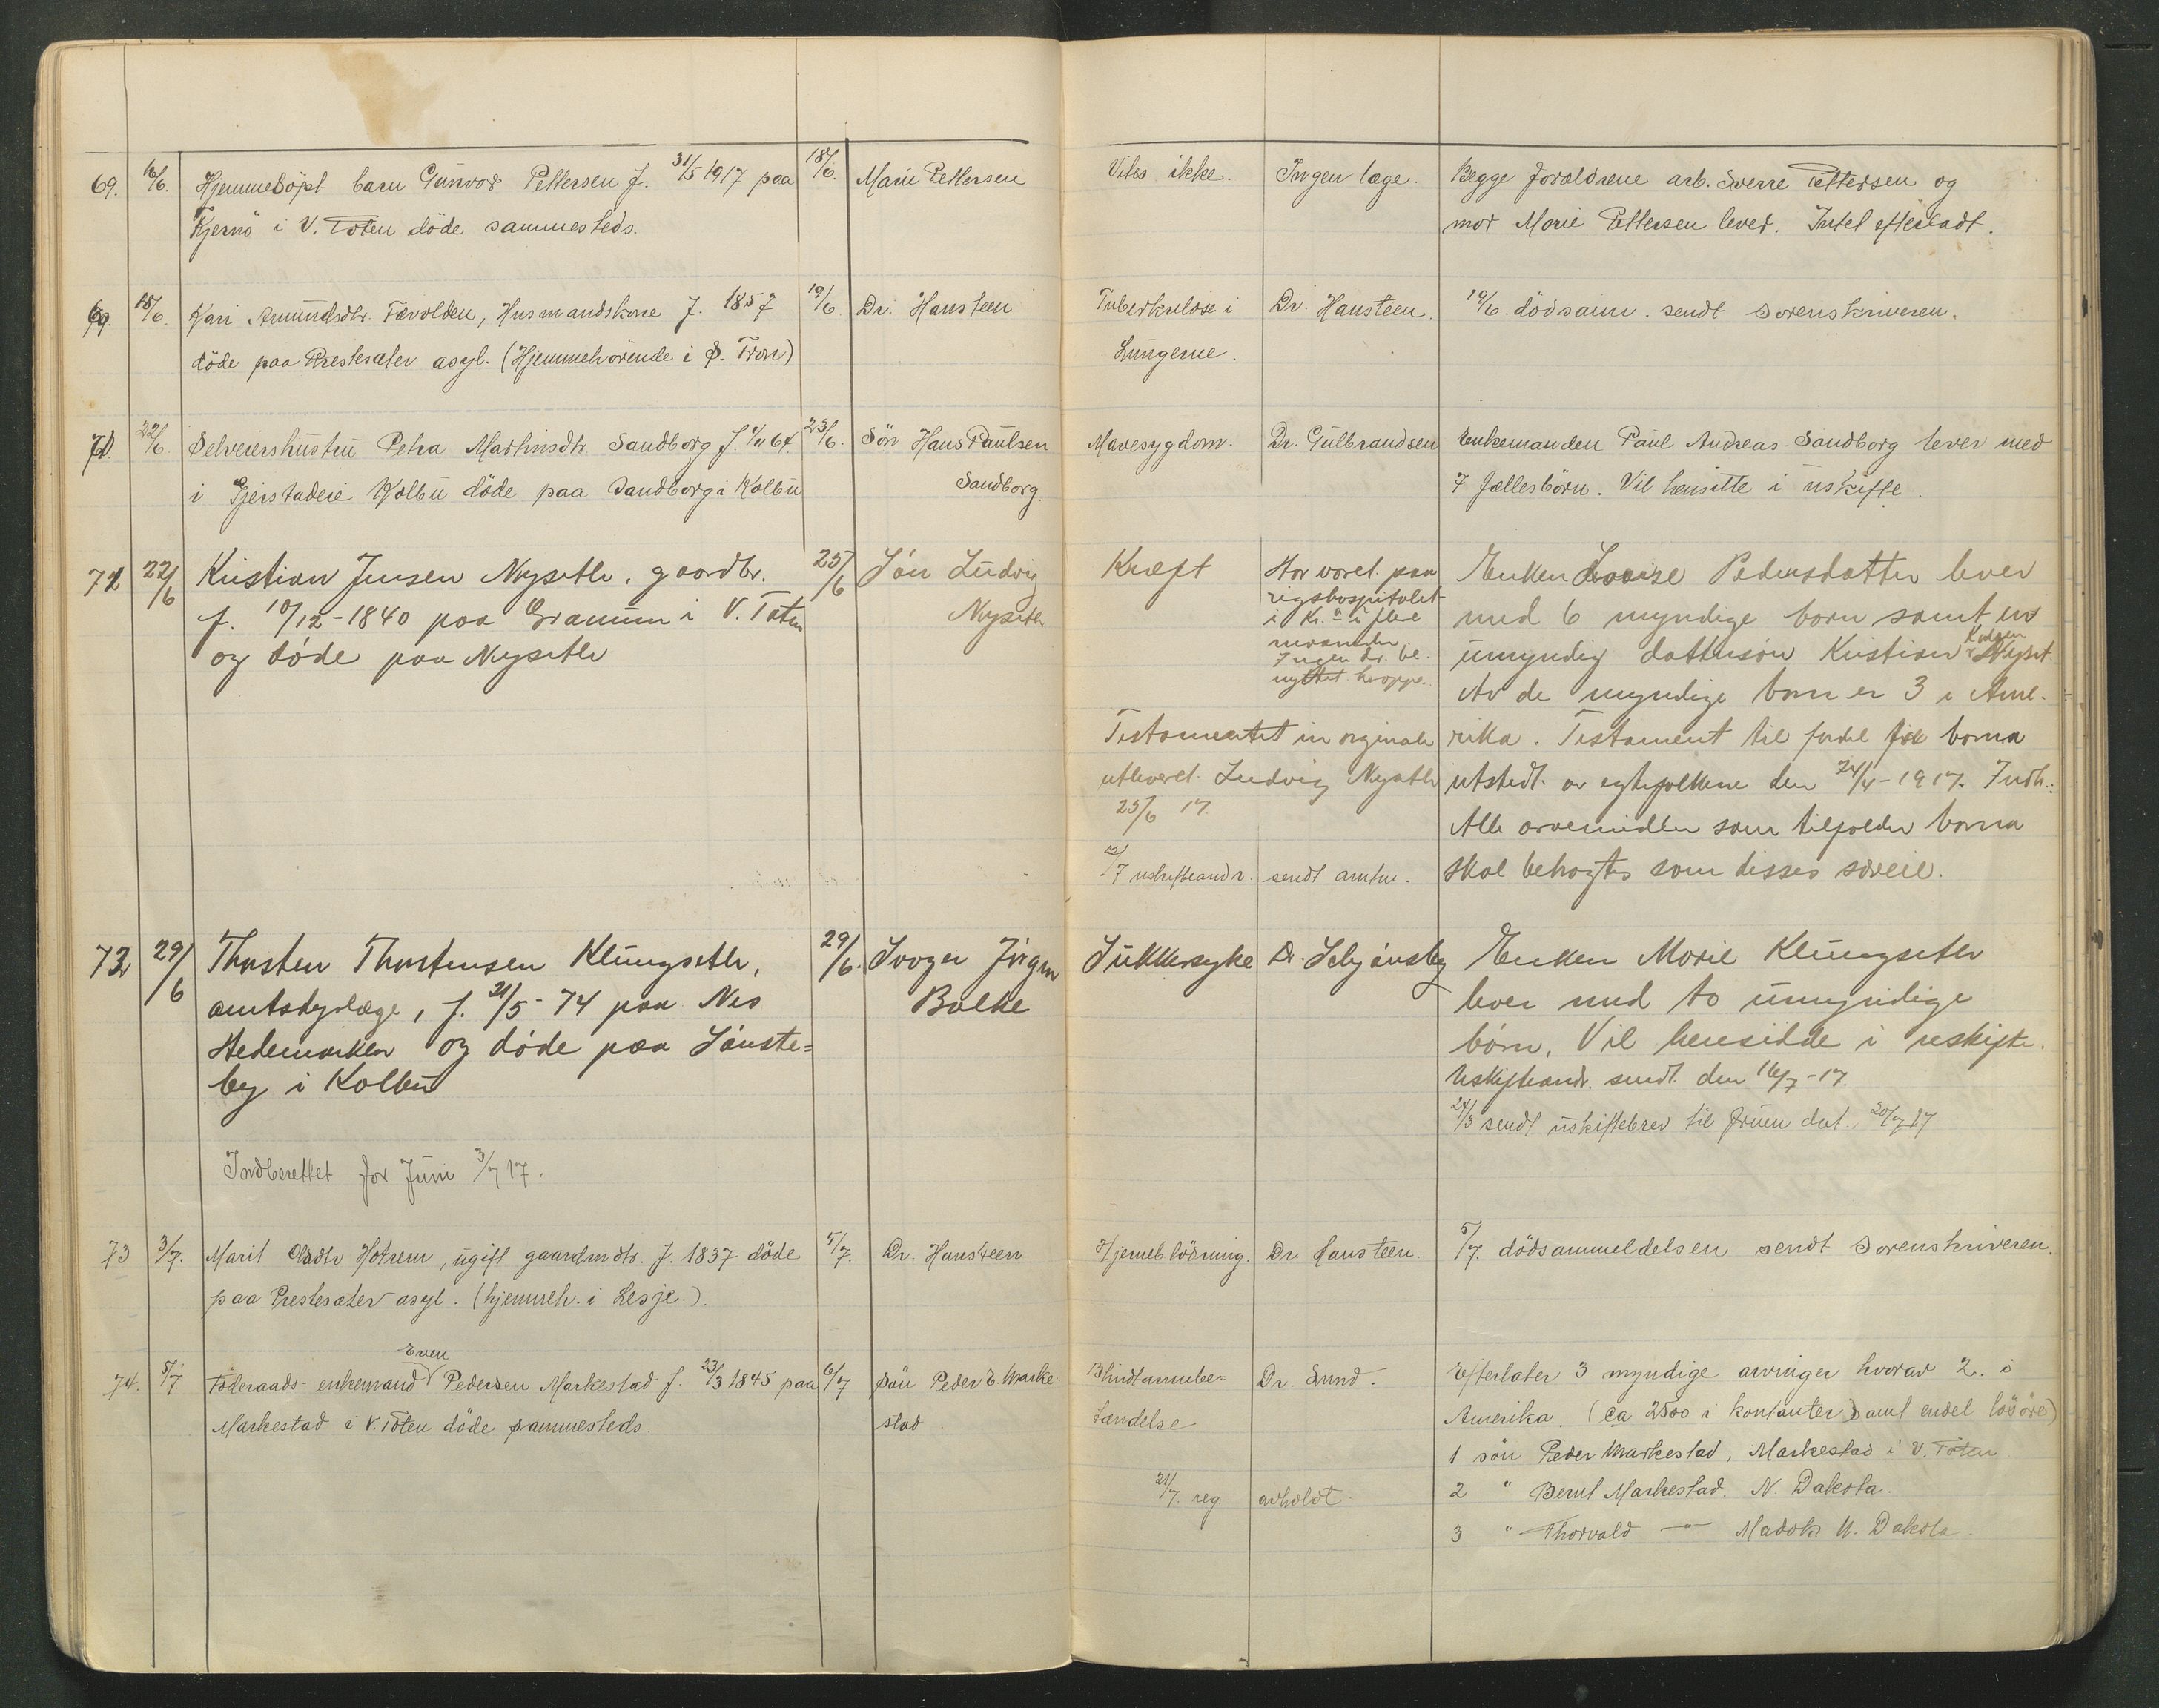 69. 16/6. Hjemmedöpt barn Gunvor Pettersen f. 31/5 1917 paa 18/6. Marie Pettersen Vites ikke. Ingen læge. Begge foraldrene arb. Sverre Pettersen og
Kjernö i V. Toten döde sammesteds. mor Marie Pettersen lever. Intet efterladt.
69. 18/6. Kari Amundsdtr. , Husmandskone f. 1857 19/6 Dr. Hansteen Tuberkulose i Dr. Hansteen. 19/6. dödsanm. sendt Sorenskriveren.
döde paa Prestesæter asyl. (Hjemmehörende i S. Fron) Lungerne.
70. 22/6. Selveierhustru Petra Martinsdtr Sandborg f. 64. 23/6. Sön Hans Paulsen Mavesygdom. Dr. Gulbrandsen Enkemanden Paul Andreas Sandborg lever med
i Kolbu döde paa Sandborg i Kolbu Sandborg. 7 fællesbörn. Vil hensitte i uskifte.
71 22/6 Kristian Jensen Nyseth, gaardbr. 25/6 Sön Ludvig Kræft Har været paa Enken Lovise Pedersdatter lever
f. 10/12-1840 paa Granum i V. Toten Nyseth rigshospitalet med 6 myndige born samt en
og döde paa Nyseth i Kr.a i flere
maaneder umyndig dattersön Kristian Nyset.
Ingen dr. be-
nyttet Av de myndige born er 3 i Ame-
Testamentet in orginale rika. Testament til fordel for borna
utleveret Ludvig Nyseth utstedt av egtefolkene den 24/4-1917. Indh.:
25/6 17. Alle arvemidler som tilfalder borna
7 uskifteandr. sendt amtm. skal betragtes som disses særeie.
72 29/6 Thorsten Thorstensen Klungseth, 29/6. Svoger Jörgen Sukkersyke Dr. Enken Marie Klungseth
amtsdyrlæge, f. 21/5-74 paa Nes Bolke lever med to umyndige
Hedemarken og döde paa Sönste=
by i Kolbu börn. Vil hensidde i uskifte.
Uskifteandr. sendt den 16/7-17.
sendt uskiftebrev til fruen dat. 20/7 17
Indberettet for Juni 3/7 17.
73 3/7. Marit Olsdtr , ugift gaardmdtr. f. 1837 döde 5/7. Dr. Hansteen Hjerneblödning. Dr. Hansteen. 5/7. dödsanmeldelsen sendt Sorenskriveren.
paa Prestesæter asyl. (hjemmeh. i Lesje.).
Even
74. 5/7. Föderaads-enkemand Pedersen Markestad f. 23/3 1845 paa 6/7 Sön Peder E. Marke- Blindtarmbe= Dr. Lund. Efterlater 3 myndige arvinger hvorav 2. i
Markestad i V. Toten döde sammesteds. stad tændelse Amerika. (ca 2500 i kontanter samt endel lösöre)
1 sön Peder Markestad, Markestad i V. Toten
21/7. reg. avholdt. 2 " Bernt Markestad. N. Dakota.
3 " Thorvald — Madok N. Dakota.